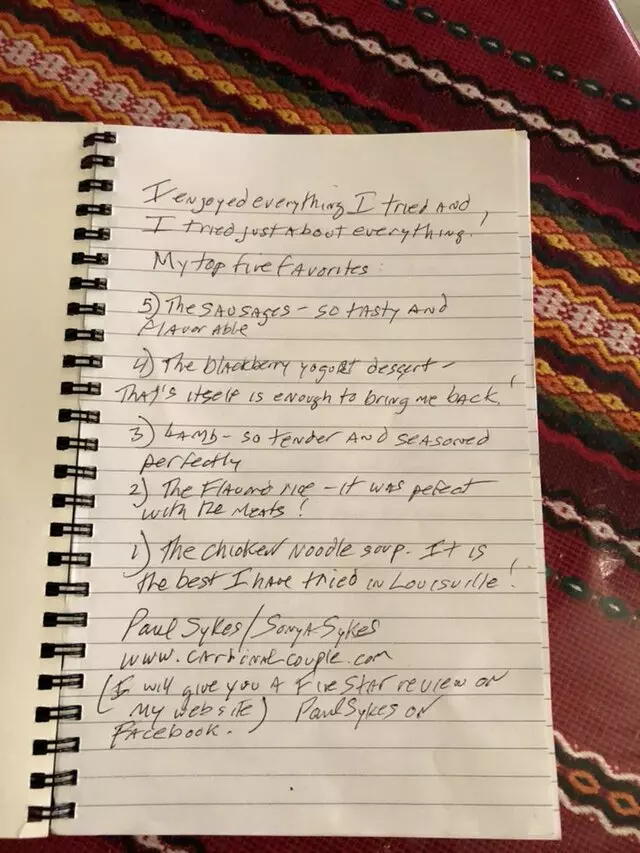 I enjoyed everything I tried AND,
I tried just About everything!
My top five favorites:
5) The SAUSAGES - so tasty AND
flavorable
4) The blackberry yogurt
That's itself is enough to bring me back!
3) LAMB - so tender AND seasoned
perfectly
2) The rice - it was pefect
with the meats!
1) The chicken noodle soup. It is
the best I have tried in Louisville!
Paul Sykes/Sonya Sykes
www.cardinalcouple.com
(I will give you A Five Star review on
my website) Paul Sykes on
Facebook.